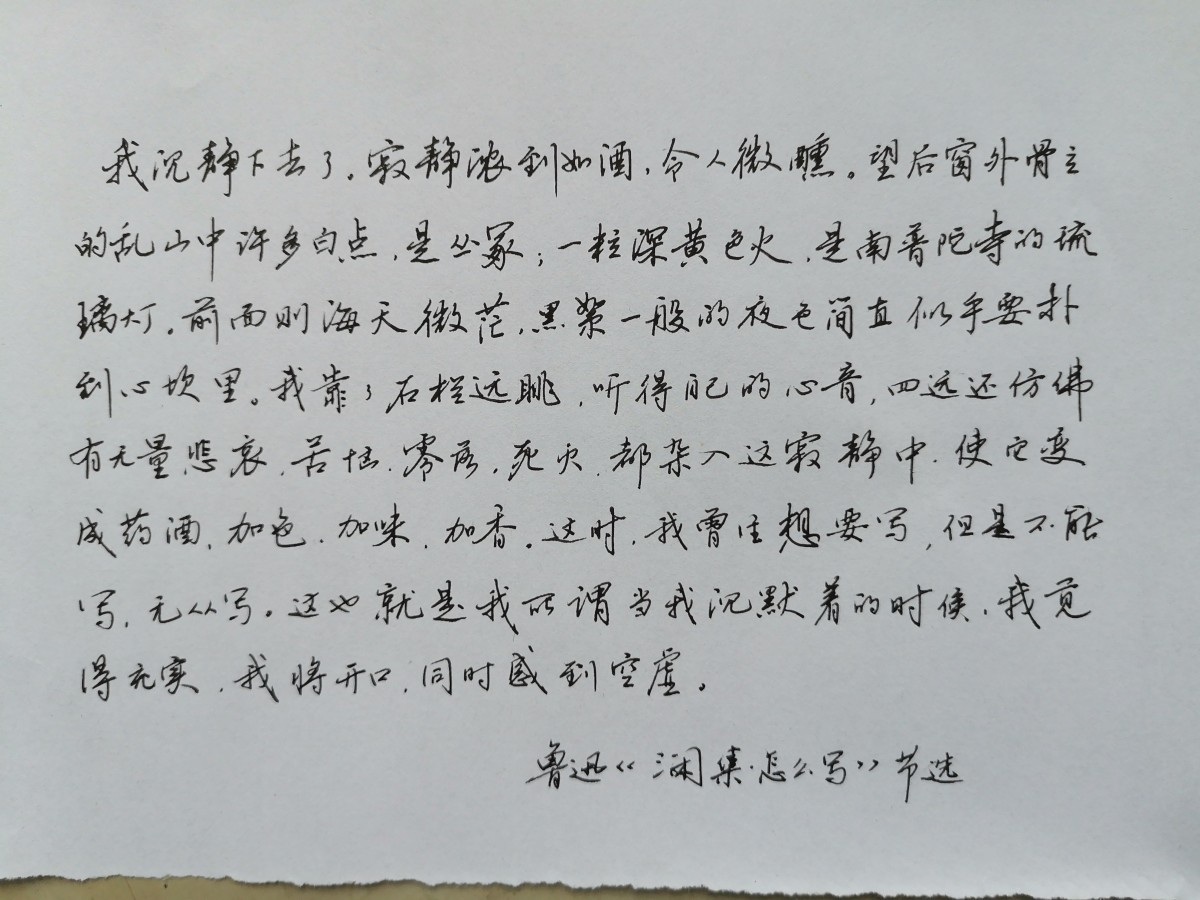 我沉静下去了。寂静浓到如酒，令人微醺。望后窗外骨立
的乱山中许多白点，是丛冢；一粒深黄色火，是南普陀寺的琉
璃灯。前面则海天微茫，黑絮一般的夜色简直似乎要扑
到心坎里。我靠了石栏远眺，听得自己的心音，四远还仿佛
有无量悲哀，苦恼，零落，死灭，都杂入这寂静中，使它变
成药酒，加色，加味，加香。这时，我曾经想要写，但是不能
写，无从写。这也就是我所谓当我沉默着的时候，我觉
得充实，我将开口，同时感到空虚。
鲁迅《三闲集·怎么写》节选